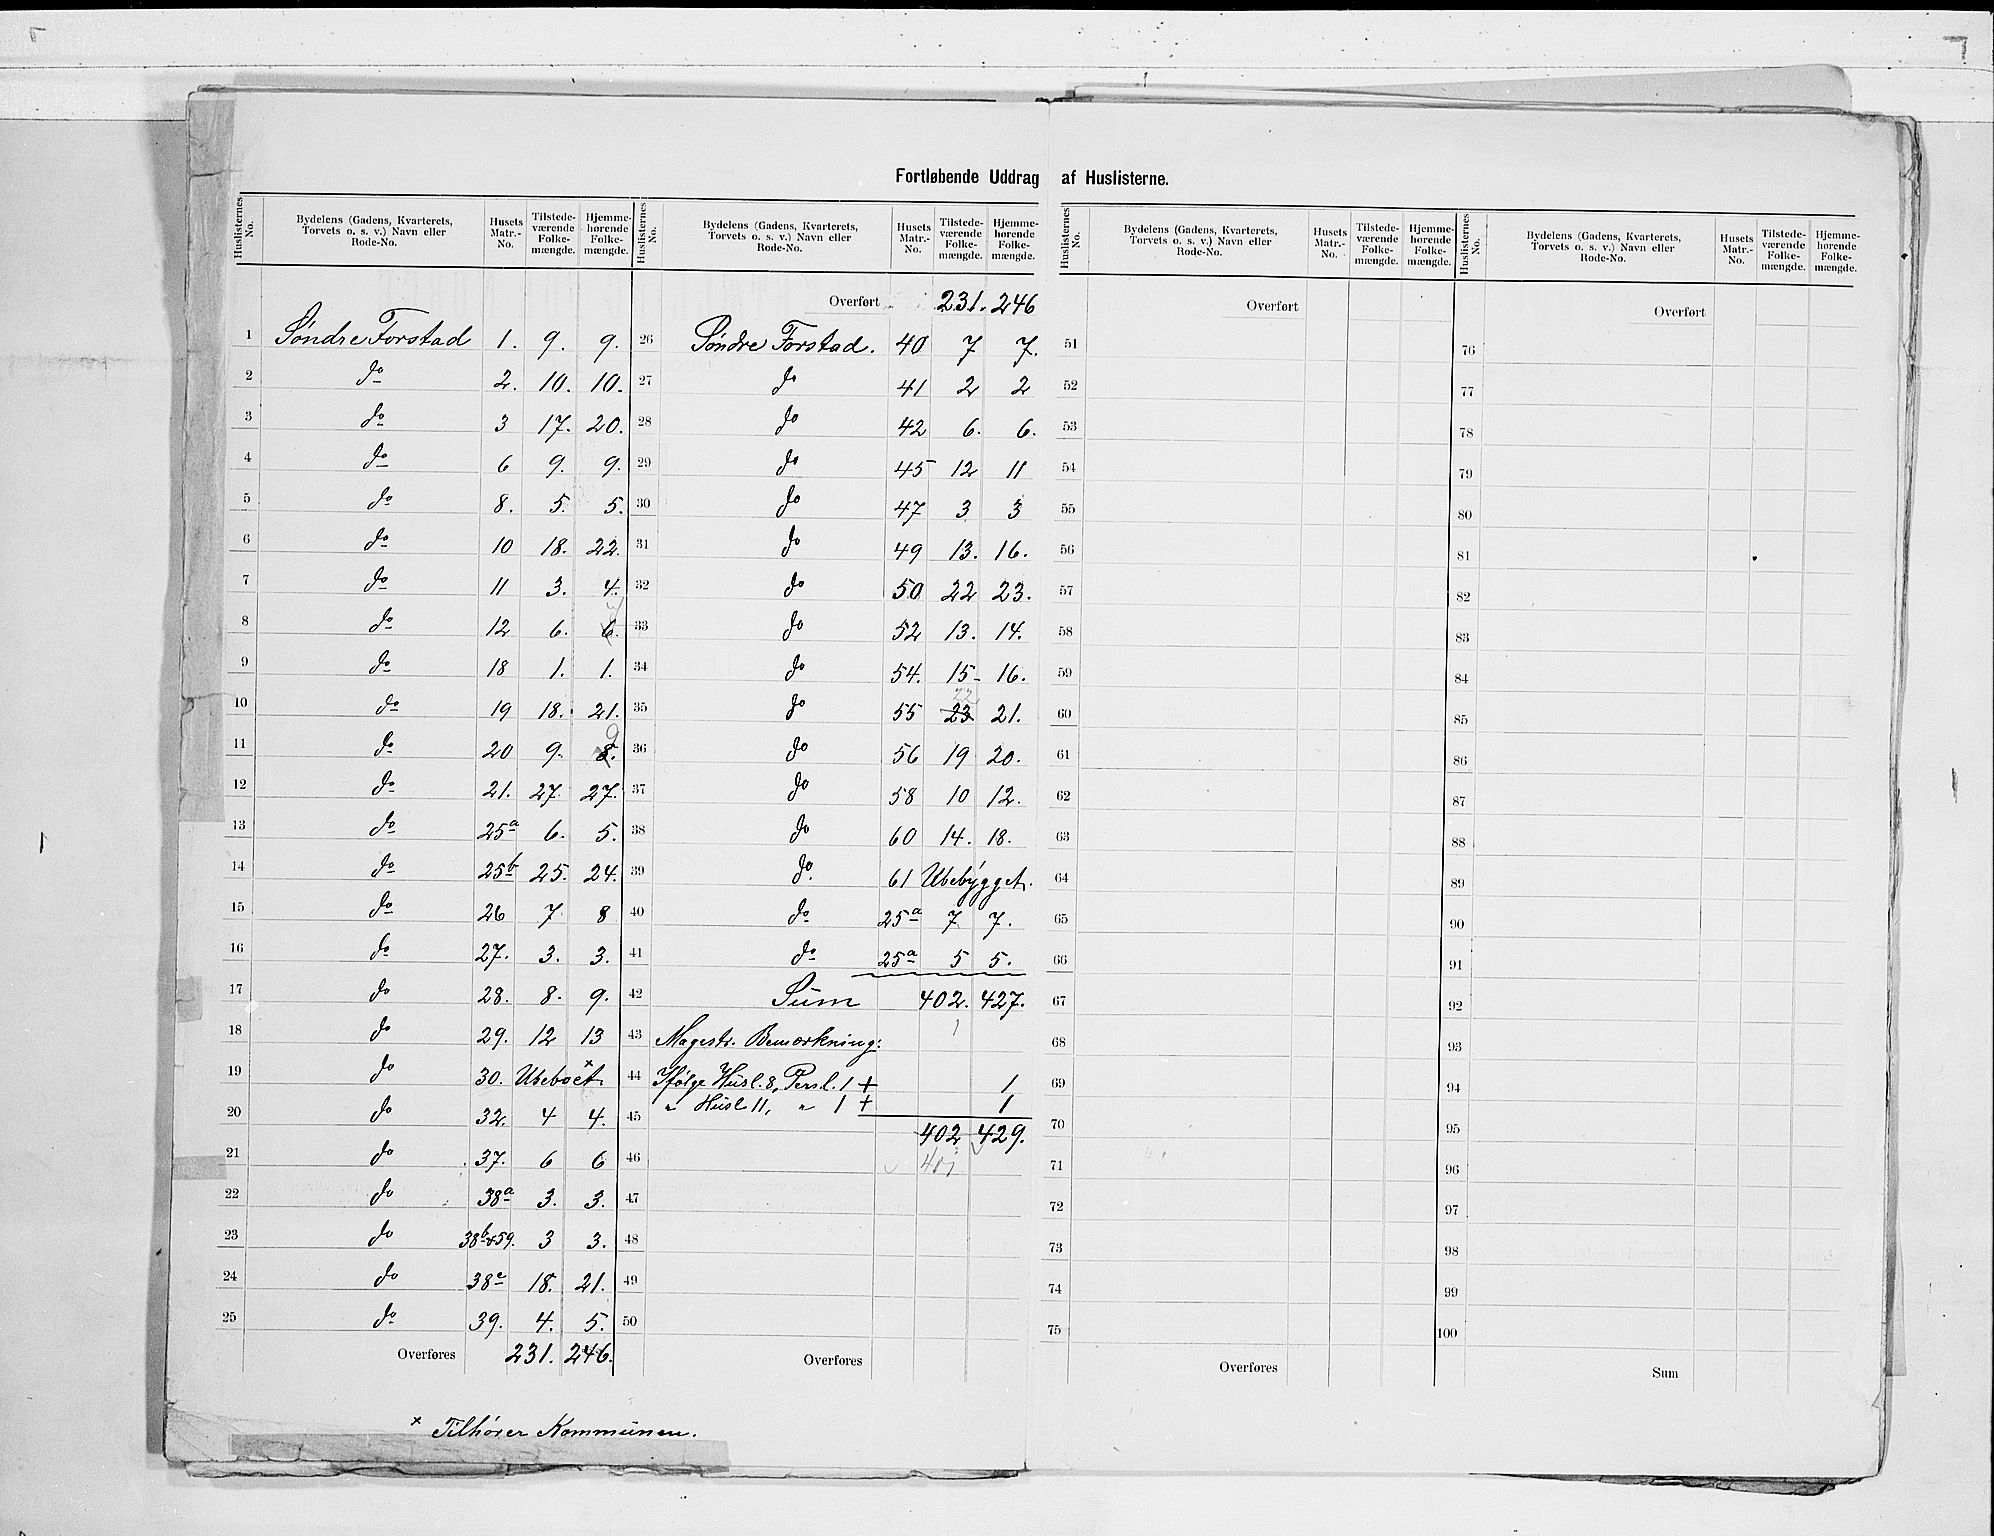 Fortløbende Uddrag af Huslisterne.
Huslisternes No. | Bydelens (Gadens, Kvarterets, Torvets o. s. v.) Navn eller Rode-No. | Husets Matr.-No. | Tilstedeværende Folkemængde. | Hjemmehørende Folkemængde.
1 Søndre Forstad 1. 9. 9.
2 do 2. 10. 10.
3 do 3 17. 20.
4 do 6 9. 9.
5 do 8. 5. 5.
6 do 10 18. 22.
7 do 11 3. 4.
8 do 12 6. 6.
9 do 18 1. 1.
10 do 19 18. 21.
11 do 20 9. 8. 9
12 do 21. 27. 27.
13 do 25a 6. 5.
14 do 25b 25. 24.
15 do 26 7 8
16 do 27. 3. 3.
17 do 28. 8. 9.
18 do 29. 12 13
19 do 30. Ubeboet ×
20 do 32. 4 4.
21 do 37. 6 6
22 do 38a 3. 3.
23 do 38b+59. 3 3.
24 do 38c 18. 21.
25 do 39. 4. 5.
Overføres 231. 246.
× Tilhører Kommunen.
Huslisternes No. | Bydelens (Gadens, Kvarterets, Torvets o. s. v.) Navn eller Rode-No. | Husets Matr.-No. | Tilstedeværende Folkemængde. | Hjemmehørende Folkemængde.
Overført 231. 246
26 Søndre Forstad. 40 7 7.
27 do 41 2 2
28 do 42 6. 6.
29 do 45 12 11
30 do 47 3 3
31 do 49 13. 16.
32 do 50 22 23.
33 do 52 13. 14.
34 do 54. 15- 16.
35 do 55 23 22 21.
36 do 56 19 20.
37 do 58 10 12.
38 do 60 14. 18.
39 do. 61 Ubebygget.
40 do 25a 7 7.
41 do 25a 5 5.
42 Sum 402. 427.
43 Magestr. Bemærkning:
44 Ifølge Husl. 8, Persl. 1 + 1
45 " Husl 11, " 1 + 1
402 429.
46 401
47
48
49
50
Overføres
Huslisternes No. | Bydelens (Gadens, Kvarterets, Torvets o. s. v.) Navn eller Rode-No. | Husets Matr.-No. | Tilstedeværende Folkemængde. | Hjemmehørende Folkemængde.
Overført
51
52
53
54
55
56
57
58
59
60
61
62
63
64
65
66
67
68
69
70
71
72
73
74
75
Overføres
Huslisternes No. | Bydelens (Gadens, Kvarterets, Torvets o. s. v.) Navn eller Rode-No. | Husets Matr.-No. | Tilstedeværende Folkemængde. | Hjemmehørende Folkemængde.
Overført
76
77
78
79
80
81
82
83
84
85
86
87
88
89
90
91
92
93
94
95
96
97
98
99
100
Sum